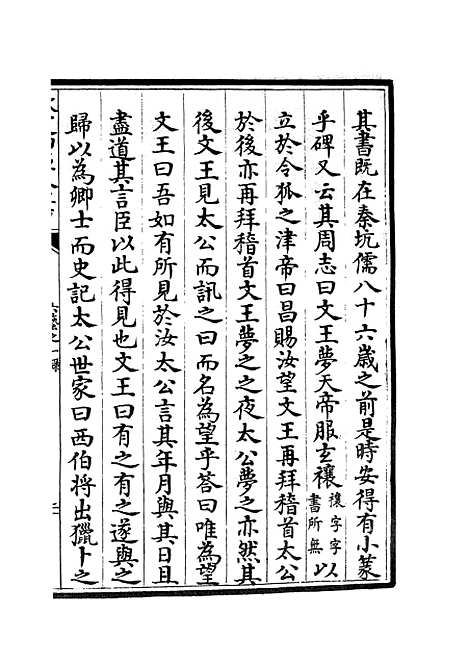 其書既在秦坑儒八十六歲之前是時安得有小篆
乎碑又云其周志曰文王夢天帝服玄禳禳字字書所無以
立於令狐之津帝曰昌賜汝望文王再拜稽首太公
於後亦再拜稽首文王夢之之夜太公夢之亦然其
後文王見太公而訊之曰而名為望乎答曰唯為望
文王曰吾如有所見於汝太公言其年月與其日且
盡道其言臣以此得見也文王曰有之有之遂與之
歸以為卿士而史記太公世家曰西伯將出獵卜之